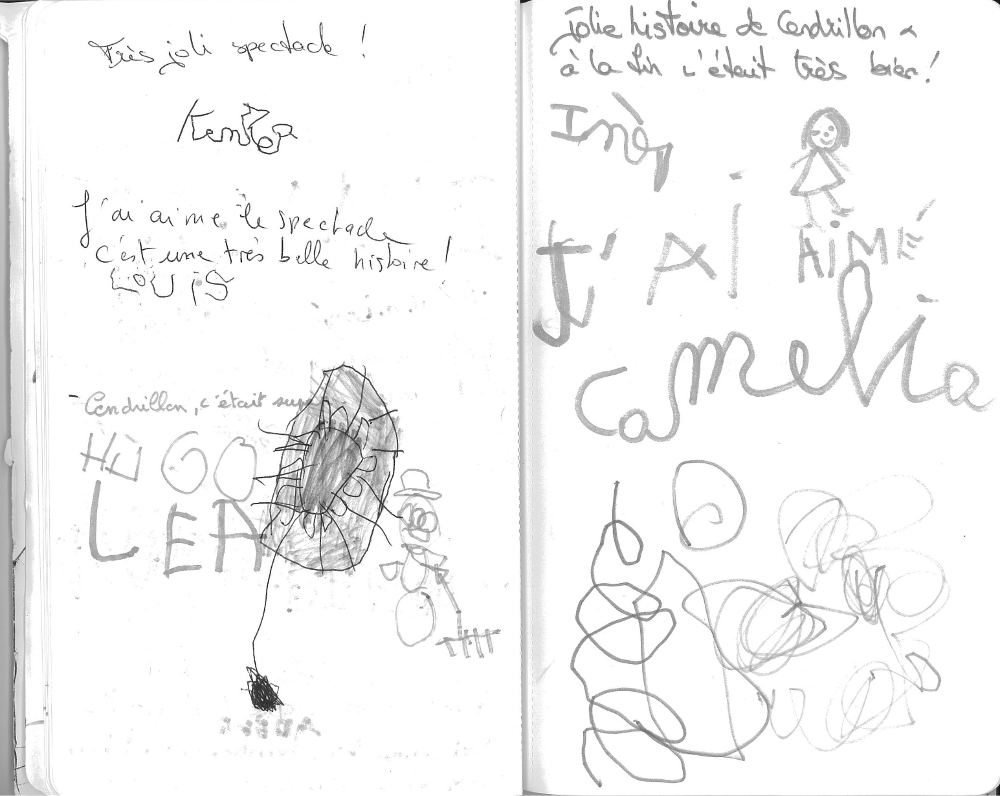 Très joli spectacle !
Kenza
J'ai aimé le spectacle
c'est une très belle histoire !
LOUIS
Cendrillon, c'était
HUGO
LEA
Jolie histoire de Cendrillon
à la fin c'était très bien !
Inès
J'AI AIMÉ
Camelia